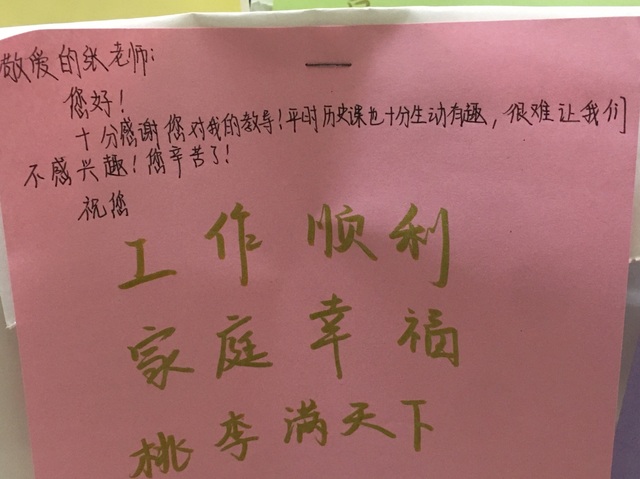 敬爱的张老师:
您好!
十分感谢您对我的教导!平时历史课也十分生动有趣,很难让我们
不感兴趣!您辛苦了!
祝您
工作顺利
家庭幸福
桃李满天下